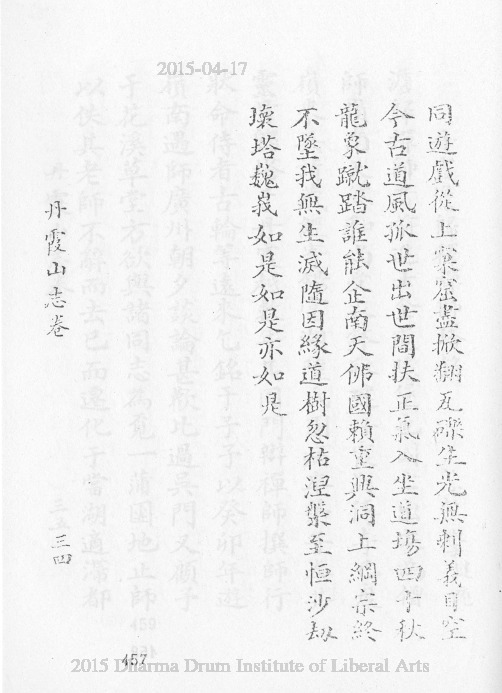 2015-04-17
同遊戲從上窠窟盡掀翻瓦礫生光無剩義目空
今古道風孤世出世間扶正氣入坐道場四十秋
龍象蹴踏誰能企南天佛國賴重興洞上綱宗終
不墜我無生滅隨因緣道樹忽枯涅槃至恒沙劫
壞塔巍峩如是如是亦如是
丹霞山志卷
三四
457
2015 Dharma Drum Institute of Liberal Arts